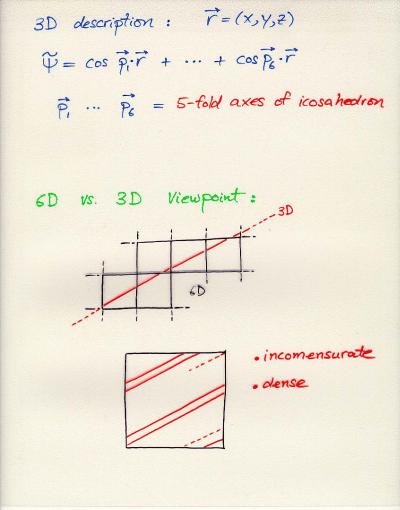 3D description : r⃗ = (x,y,z)
Ψ̃ = cos p⃗₁·r⃗ + ... + cos p⃗₆·r⃗
p⃗₁ ... p⃗₆ = 5-fold axes of icosahedron
6D vs. 3D Viewpoint :
3D
6D
• incomensurate
• dense